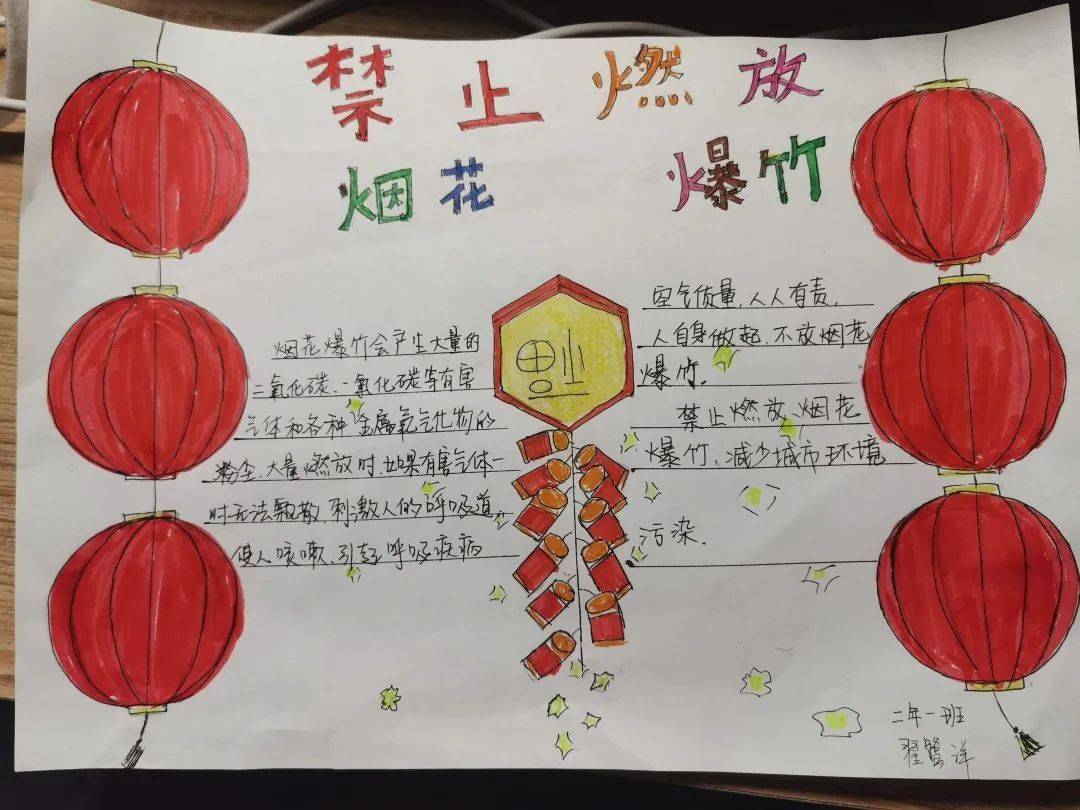 禁止燃放
烟花 爆竹
烟花爆竹会产生大量的
二氧化碳、一氧化碳等有害
气体和各种金属氧气化物的
粉尘,大量燃放时,如果有害气体一
时无法飘散,刺激人的呼吸道
使人咳嗽、引起呼吸疾病
福
空气质量,人人有责,
人自身做起,不放烟花
爆竹.
禁止燃放、烟花
爆竹,减少城市环境
污染.
二年一班
翟鹭洋